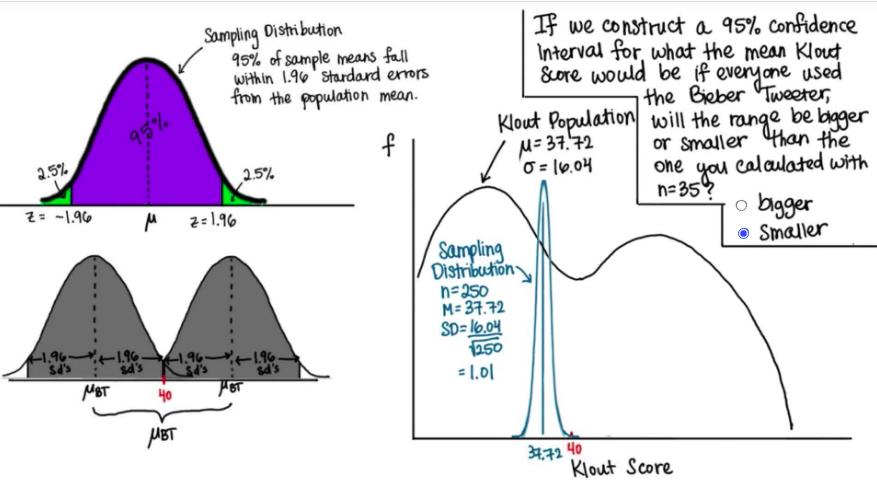 Sampling Distribution
95% of sample means fall
within 1.96 standard errors
from the population mean.
95%
2.5%
2.5%
z = -1.96
μ
z=1.96
If we construct a 95% confidence
interval for what the mean Klout
Score would be if everyone used
the Bieber Tweeter,
will the range be bigger
or smaller than the
one you calculated with
n=35?
bigger
smaller
f
Klout Population
μ=37.72
σ=16.04
Sampling
Distribution
n=250
M=37.72
SD=16.04
√250
=1.01
37.72 40
Klout Score
1.96 sd's
1.96 sd's
1.96 sd's
1.96 sd's
μBT
40
μBT
μBT